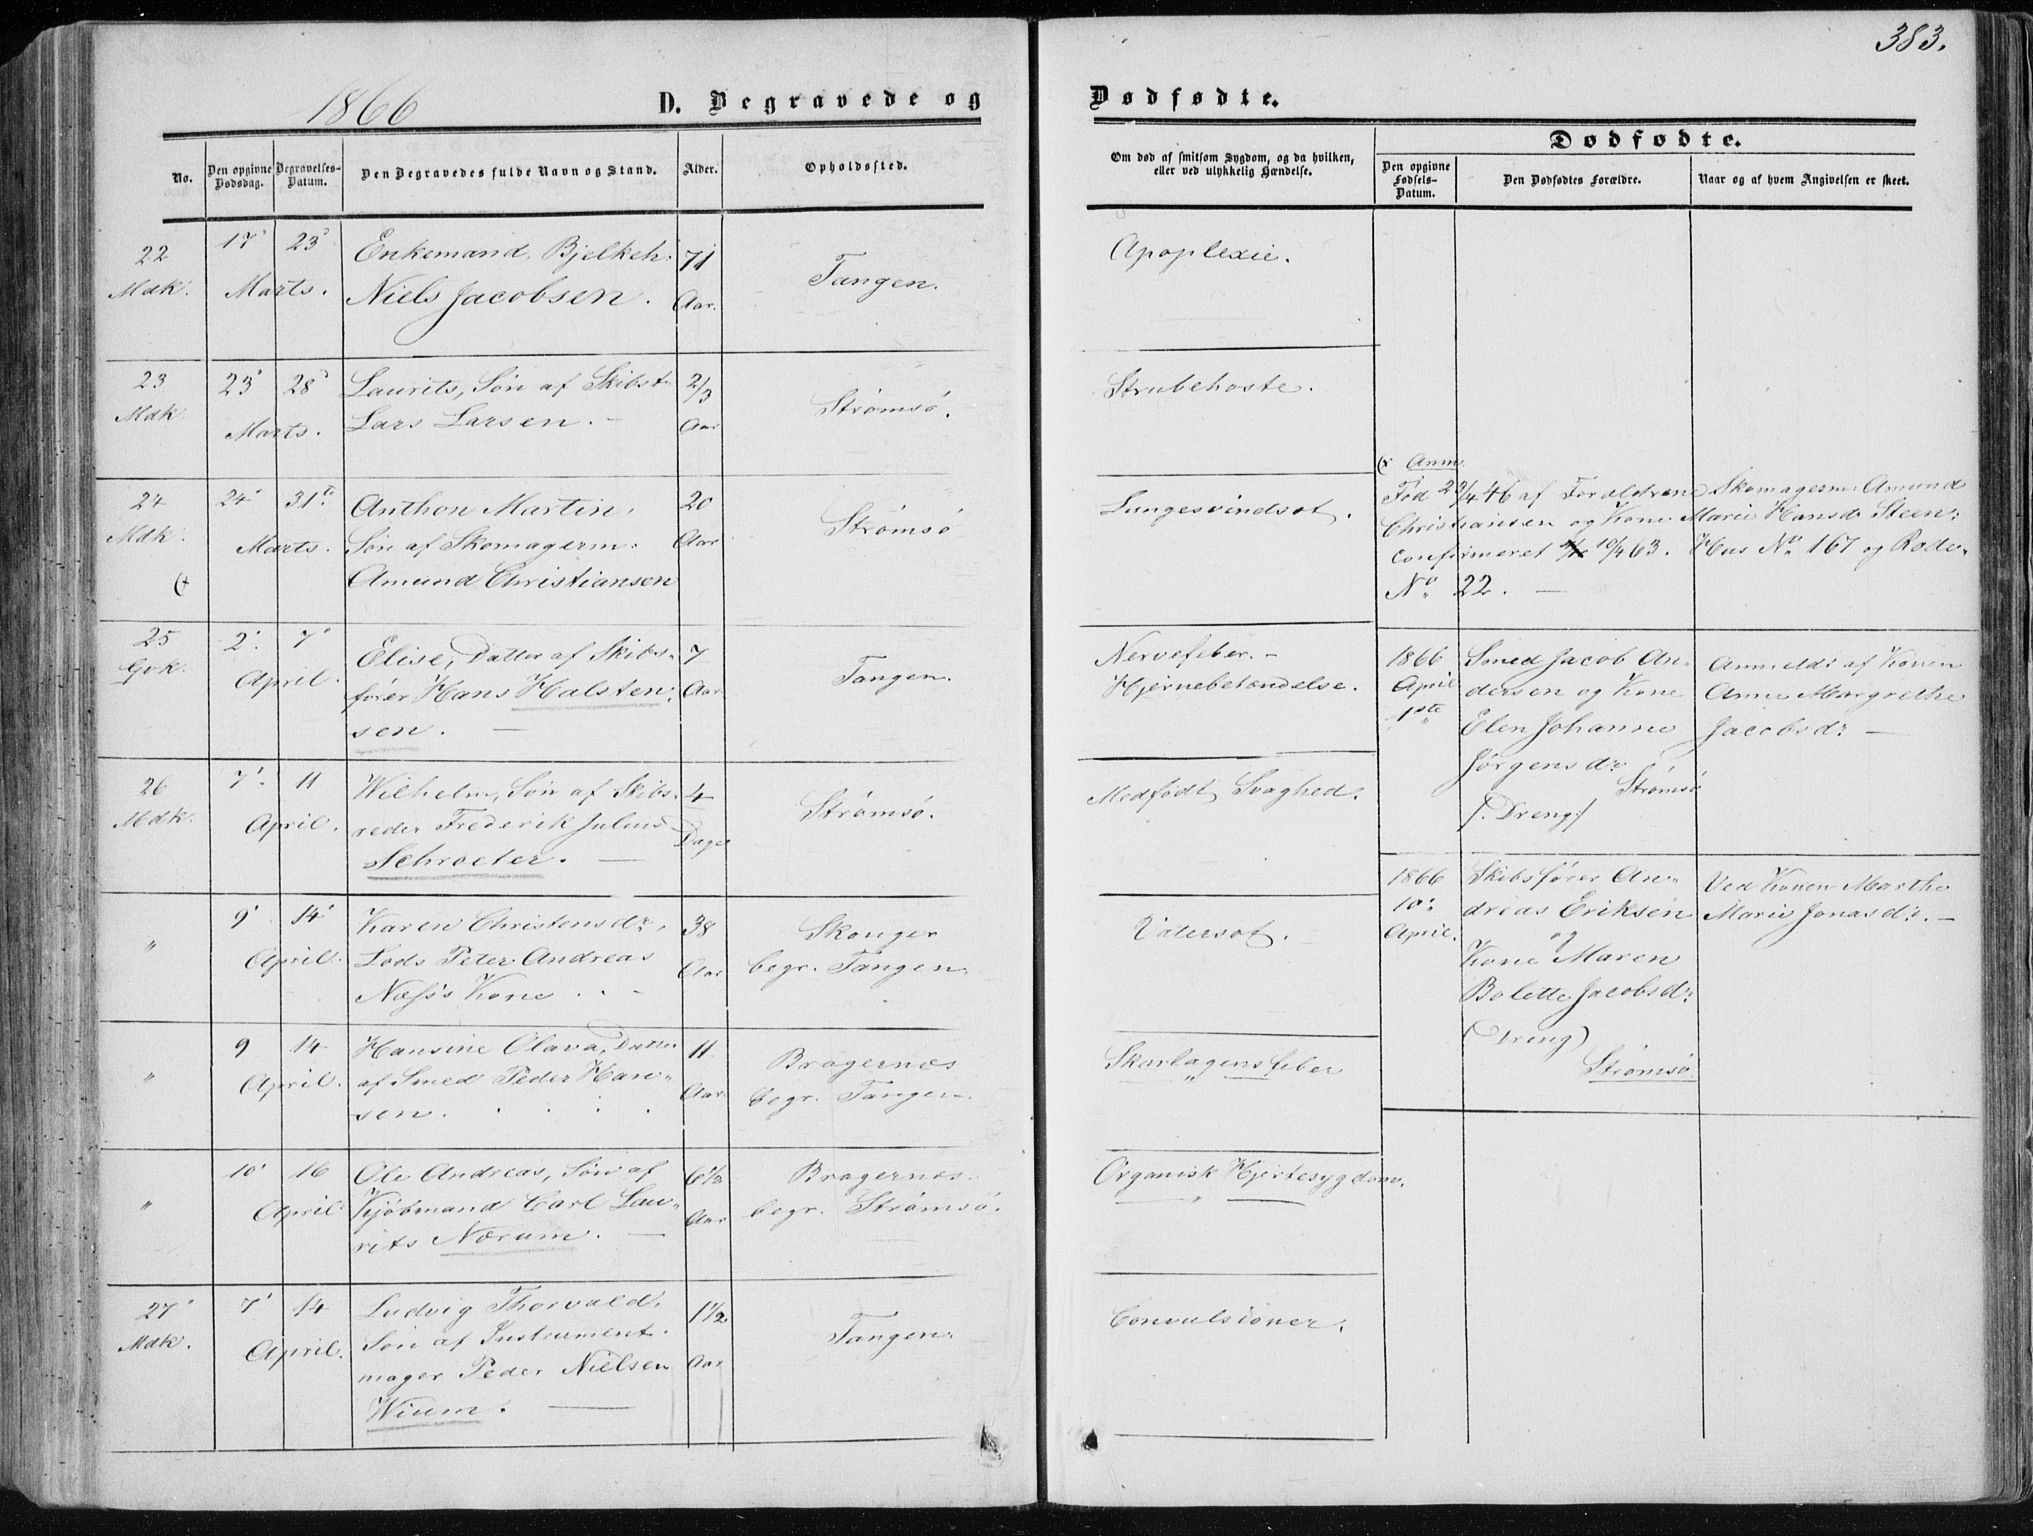 383.
1866
D. Begravede og
Dødfødte.
Dødfødte.
No.
Den opgivne Dødsdag.
Begravelses-Datum.
Den Begravedes fulde Navn og Stand.
Alder.
Opholdssted.
Om død af smitsom Sygdom, og da hvilken,
eller ved ulykkelig Hændelse.
Den opgivne Fødsels-Datum.
Den Dødfødtes Forældre.
Naar og af hvem Angivelsen er skeet.
22
Mdk.
17' 23'
Marts.
Enkemand, Bjelkeh:
Niels Jacobsen.
71
Aar.
Tangen.
Apoplexie.
23
Mdk.
23' 28'
Marts.
Laurits, Søn af Skibst:
Lars Larsen. -
2/3
Aar
Strømsø.
Strubehoste.
24
Mdk.
24' 31te
Marts.
Anthon Martin,
Søn af Skomagerm:
Amund Christiansen
20
Aar
Strømsø
Lungesvindsot.
Anm.
Fød 22/4 46 af Forældrene Skomagerm: Amund
Christiansen og Kone Marie Hansd: Steen:
confirmeret 10/4 63. Hus No 167 og Rode
No 22. —
25
Gvk.
2' 7'
April.
Elise, Datter af Skibs-
fører Hans Halsten-
sen. —
7
Aar
Tangen.
Nervefeber. -
Hjernebetændelse.
1866
April
1ste
Smed Jacob An-
dersen og Kone
Elen Johanne
Jørgensd:
Strømsø
/: Dreng :/
Anmeldt af Konen
Anne Margrethe
Jacobsd: —
26
Mdk.
7' 11
April.
Wilhelm, Søn af Skibs-
reder Frederik Julius
Schroeter. —
4
Dage
Strømsø.
Medfødt Svaghed.
1866
10:
April.
Skibsfører An-
dreas Eriksen
og
Kone Maren
Bolette Jacobsd:
(Dreng)
Strømsø.
Ved Konen Marthe
Marie Jonasd:. -
"
9' 14'
April.
Karen Christensd:,
Lods Peter Andreas
Næss's Kone . . -
38
Aar
Skonger
begr. Tangen.
Vatersot.
"
9 14
April.
Hansine Olava, Datter
af Smed Peder Han-
sen. . . . .
11
Aar.
Bragernæs
begr. Tangen.
Skarlagensfeber
"
10' 16
April
Ole Andreas, Søn af
Kjøbmand Carl Lau-
rits Nærum. —
6 1/2
Aar
Bragernæs.
begr. Strømsø.
Organisk Hjertesygdom.
27'
Mdk.
7' 14
April.
Ludvig Thorvald,
Søn af Instrument-
mager Peder Nielsen
Wium. —
1 1/2
Aar
Tangen.
Convulsioner.